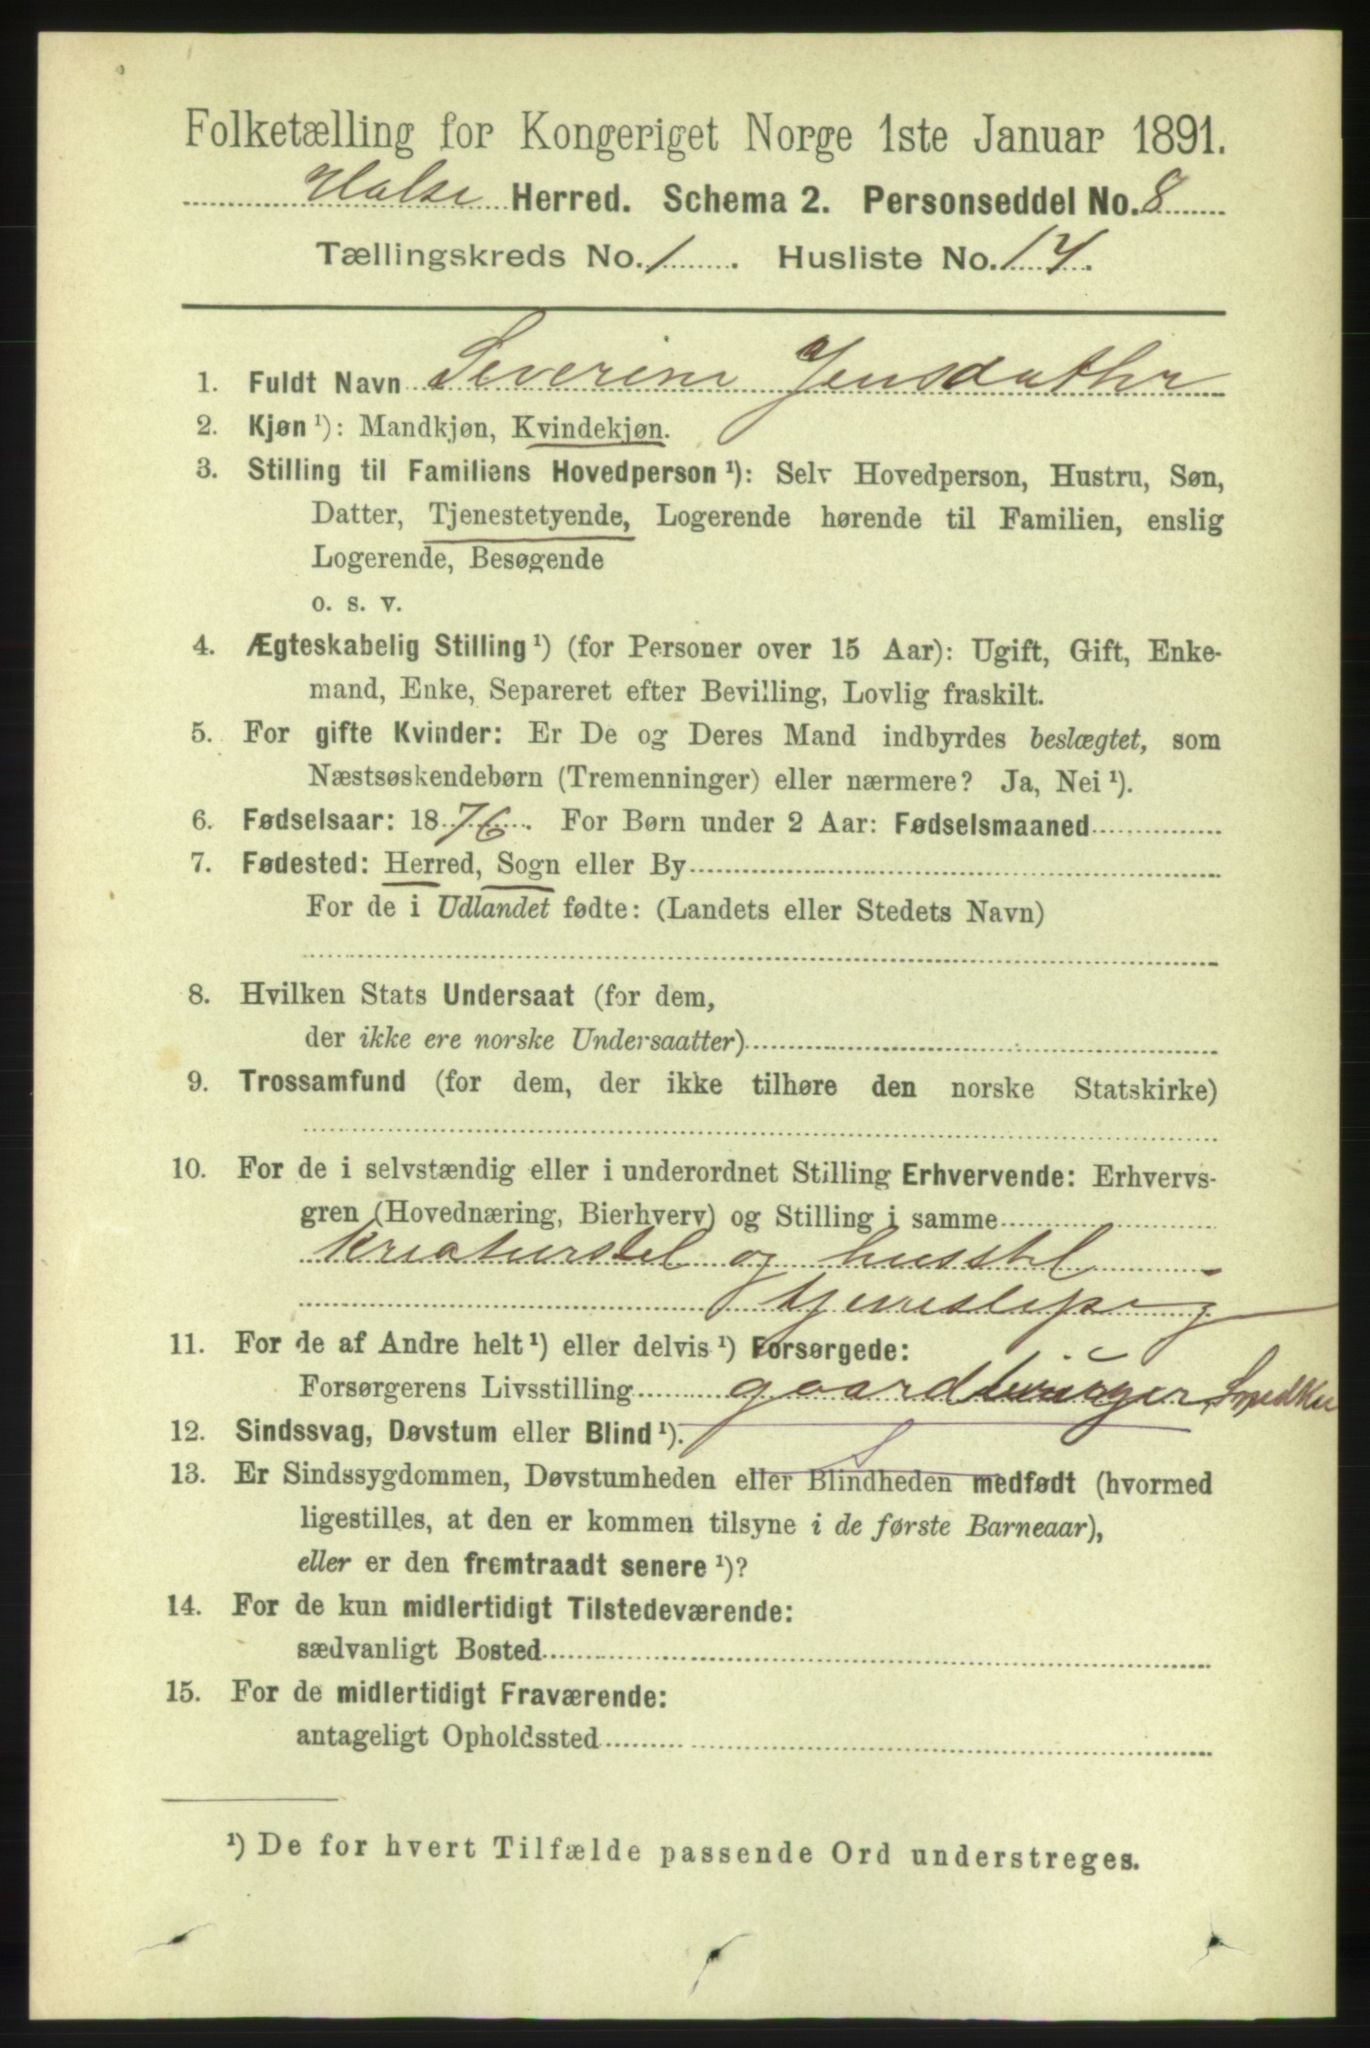 Folketælling for Kongeriget Norge 1ste Januar 1891.
Halse Herred. Schema 2. Personseddel No. 8
Tællingskreds No. 1. Husliste No. 14.
1. Fuldt Navn Severine Jensdatter
2. Kjøn ¹): Mandkjøn, Kvindekjøn.
3. Stilling til Familiens Hovedperson ¹): Selv Hovedperson, Hustru, Søn,
Datter, Tjenestetyende, Logerende hørende til Familien, enslig
Logerende, Besøgende
o. s. v.
4. Ægteskabelig Stilling ¹) (for Personer over 15 Aar): Ugift, Gift, Enke-
mand, Enke, Separeret efter Bevilling, Lovlig fraskilt.
5. For gifte Kvinder: Er De og Deres Mand indbyrdes beslægtet, som
Næstsøskendebørn (Tremenninger) eller nærmere? Ja, Nei ¹).
6. Fødselsaar: 1876. For Børn under 2 Aar: Fødselsmaaned
7. Fødested: Herred, Sogn eller By
For de i Udlandet fødte: (Landets eller Stedets Navn)
8. Hvilken Stats Undersaat (for dem,
der ikke ere norske Undersaatter)
9. Trossamfund (for dem, der ikke tilhøre den norske Statskirke)
10. For de i selvstændig eller i underordnet Stilling Erhvervende: Erhvervs-
gren (Hovednæring, Bierhverv) og Stilling i samme
kreaturstel og husstel
tjenestepig
11. For de af Andre helt ¹) eller delvis ¹) Forsørgede:
Forsørgerens Livsstilling gaardbruger,
12. Sindssvag, Døvstum eller Blind ¹).
13. Er Sindssygdommen, Døvstumheden eller Blindheden medfødt (hvormed
ligestilles, at den er kommen tilsyne i de første Barneaar),
eller er den fremtraadt senere ¹)?
14. For de kun midlertidigt Tilstedeværende:
sædvanligt Bosted
15. For de midlertidigt Fraværende:
antageligt Opholdssted
¹) De for hvert Tilfælde passende Ord understreges.